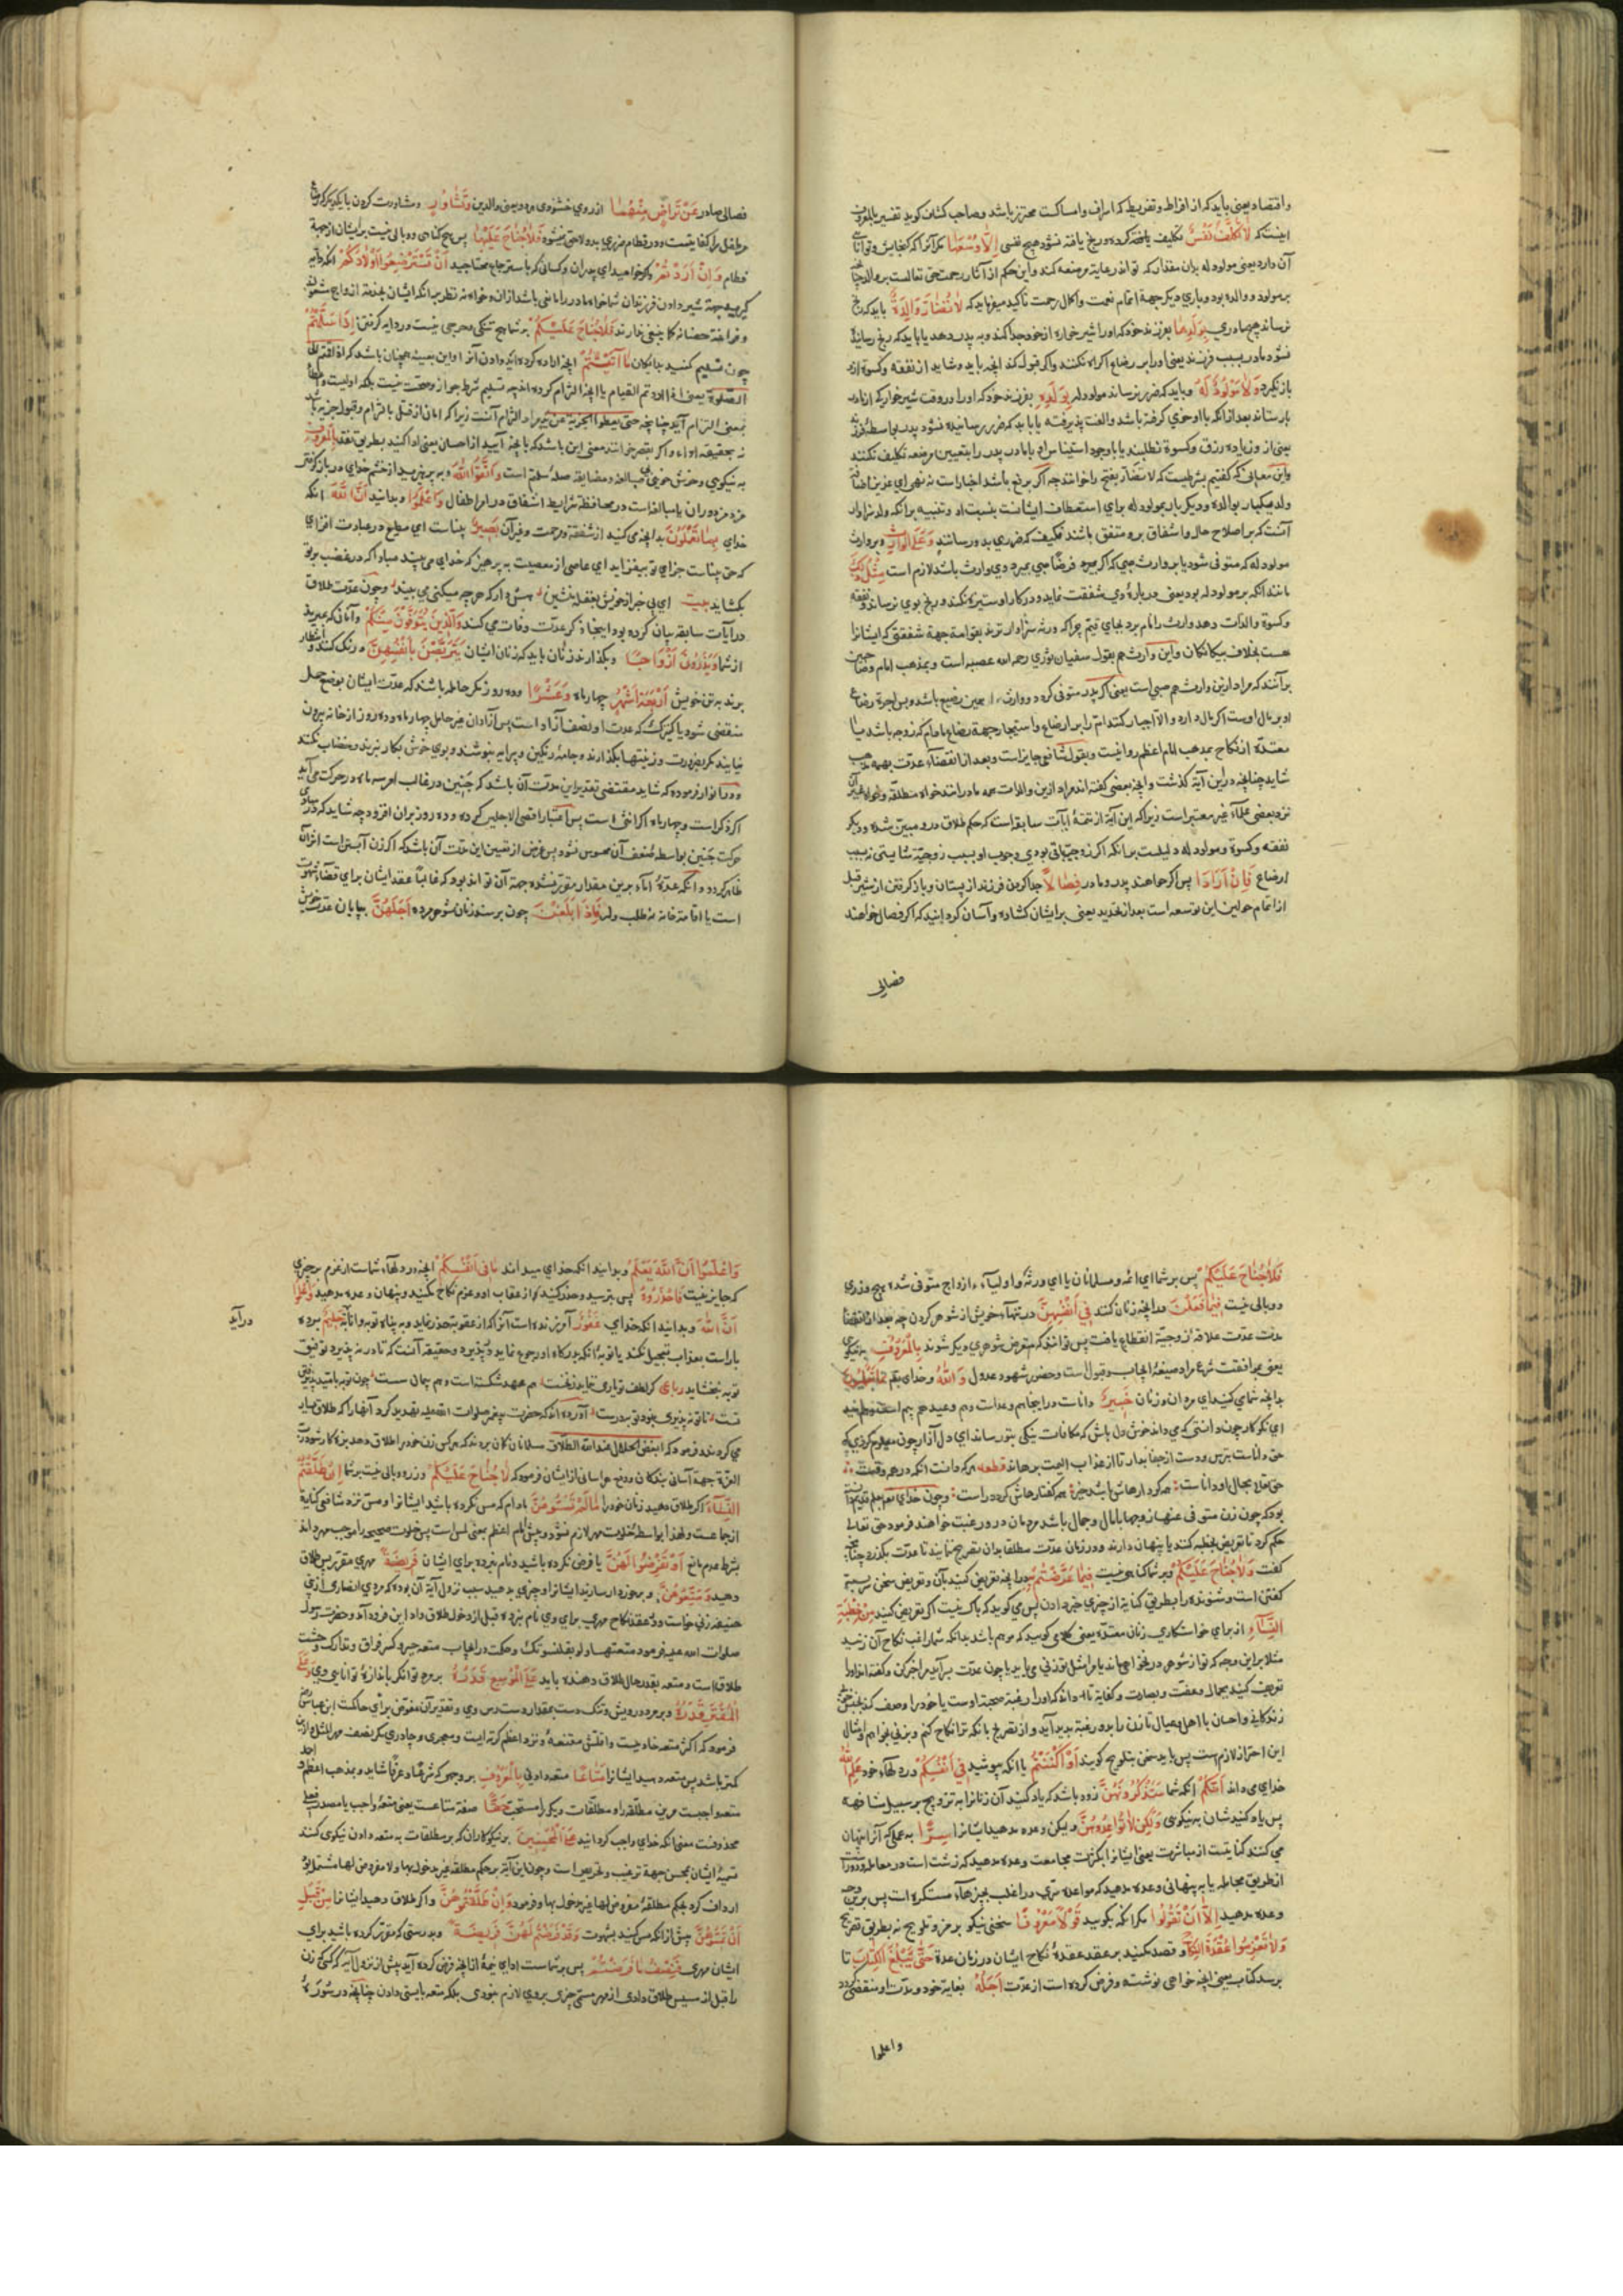 واقتصاد یعنی باید که از افراط و تفریط که اسراف و امساکست محترز باشد و صاحب کشاف کوید تفسیر بالمعروف
اینست که لَا تُكَلَّفُ نَفْسٌ تکلیف یافته کرده و رنج یافته نشود هیچ نفسی اِلَّا وُسْعَهَا مکر آنرا که کنجایش و توانایی
آن دارد یعنی مولود له بدان مقدار که تواند رعایة مرضعه کند و این حکم از آثار رحمت حق تعالیست بر والد
بر مولود و والده بود و باری دیکر جهة اتمام نعمت و اکمال رحمت تاکید میفرماید که لَا تُضَارَّ وَالِدَةٌ باید که رنج
نرساند هیچ مادری بِوَلَدِهَا بفرزند خود که او را شیرخواره از خود جدا کند و به پدر دهد یا باید که رنج رسانیده
نشود مادر بسبب فرزند یعنی او را بر رضاع اکراه نکنند و اکر قبول کند انچه باید و شاید از نفقه و کسوة ازو
باز نکیرد وَلَا مَوْلُودٌ لَهُ و باید که ضرر نرساند مولود له بِوَلَدِهِ بفرزند خود که او را در وقت شیرخوارکی از مادر
باز ستاند بعد از انکه با او خوی کرفته باشد و الفت پذیرفته یا باید که ضرر رسانیده نشود پدر بواسطه فرزند
یعنی ازو زیاده رزق و کسوة نطلبند یا با وجود استیناس او با مادر پدر را بتعیین مرضعه تکلیف نکنند
و این معانی که کفتیم بشرطیست که لا تضار بفتح را خوانند چه اکر برفع باشد اخبار است نه نهی ای عزیز اضافت
ولد یکبار بوالده و دیکر بار بمولود له برای استعطاف ایشانست بنسبت او و تنبیه بر انکه ولد سزاوار
آنست که بر اصلاح حال و اشفاق برو متفق باشند فکیف که ضرری بدو رسانند وَعَلَى الْوَارِثِ و بر وارث
مولود له که متوفی شود یا بر وارث صبی که اکر بمیرد فرضا صبی بمیرد وی وارث باشد لازم است مِثْلُ ذٰلِكَ
مانند انکه بر مولود له بود یعنی درباره وی شفقت نماید و در کار او ستیزه نکند و رنج بوی نرساند و نفقه
و کسوة والدات دهد وارث را نام برد بجای قیم چرا که ورثه سزاوارترند بقوامت جهة شفقتی که ایشانرا
هست بخلاف بیکانکان و این وارث هم بقول سفیان ثوری رحمه الله عصبه است و بمذهب امام
برآنند که مراد ازین وارث هم صبی است یعنی اکر پدر متوفی کردد و وارث او همین رضیع باشد پس اجرة رضاع
او بر مال اوست اکر مال دارد و الا اجبار کنند ام را بر ارضاع و استیجار جهة رضاع مادام که زوجه باشد یا
معتده از نکاح بمذهب امام اعظم روا نیست و بقول شافعی جایز است و بعد از انقضاء عدت بهمه مذهب
شاید چنانچه در این آیة کذشت و انچه بعضی کفته اند مراد ازین والدات همه مادرانند خواه مطلقه و خواه غیر آن
نزد بعضی علماء غیر معتبر است زیرا که این آیة از تتمه آیات سابقه است که حکم طلاق درو مبین شده و دیکر
نفقه و کسوة و مولود له دلیلست بر انکه اکر زوجیة باقی بودی وجوب او بسبب زوجیة شایستی نه بسبب
ارضاع فَاِنْ اَرَادَا پس اکر خواهند پدر و مادر فِصَالًا جدا کردن فرزند از پستان و باز کرفتن از شیر قبل
از اتمام حولین این توسعه است بعد از تحدید یعنی بر ایشان کشاده و آسان کردانید که اکر فصال خواهند
فصالی
فصالی صادر عَنْ تَرَاضٍ مِنْهُمَا از روی خشنودی هر دو یعنی والدین وَتَشَاوُرٍ و مشاورت کردن با یکدیکر که
مر طفل را کفایتست و در فطام ضرری بدو لاحق نمیشود فَلَا جُنَاحَ عَلَيْهِمَا پس هیچ کناهی و وبالی نیست بر ایشان از جهة
فطام وَاِنْ اَرَدْتُمْ و اکر خواهید ای پدران و کسانی که باسترجاع محتاجید اَنْ تَسْتَرْضِعُوا اَوْلَادَكُمْ انکه دایه
کیرید جهة شیر دادن فرزندان شما خواه مادر راضی باشد از ان و خواه نه نظر بر انکه ایشان بخدمة ازواج مشغولند
و فراغت حضانه کما ینبغی ندارند فَلَا جُنَاحَ عَلَيْكُمْ بر شما هیچ تنکی و حرجی نیست در دایه کرفتن اِذَا سَلَّمْتُمْ
چون تسلیم کنید بدایکان مَا آتَيْتُمْ انچه اراده کرده اید دادن آنرا و این بعینه همچنان باشد که اذا قمتم الی
الصلوة یعنی اذا اردتم القیام یا انچه التزام کرده اند چه تسلیم شرط جواز و صحت نیست بلکه اولیست و
بمعنی التزام آید چنانچه حتی یعطوا الجزیة عن ید مراد التزام آنست زیرا که امان از قتل بالتزام و قبول جزیه باشد
نه بحقیقه اداء و اکر بقصر خوانند معنی این باشد که بانچه آیید از احسان یعنی ادا کنید بطریق نقد بِالْمَعْرُوفِ
به نیکویی و خوش خویی بی مبالغه و مضایقه صله سلمتم است وَاتَّقُوا اللّٰهَ و بپرهیزید از خشم خدای در باز کرفتن
مزد مزدوران یا مبالغه است در محافظه شرایط اشفاق در امر اطفال وَاعْلَمُوا و بدانید اَنَّ اللّٰهَ انکه
خدای بِمَا تَعْمَلُونَ بدانچه می کنید از شفقة و رحمت و غیر آن بَصِيرٌ بیناست ای مطیع در عبادت افزای
که حق بیناست جزای تو بیفزاید ای عاصی از معصیت بپرهیز که خدای می بیند مبادا که در غضب بر تو
بکشاید بیت ای بی خبر از خویش بغفلت منشین هش دار که هرچه میکنی می بیند و چون عدت طلاق
در آیات سابقه بیان کرده بود اینجا ذکر عدت وفات می کند وَالَّذِينَ يُتَوَفَّوْنَ مِنْكُمْ و آنانکه بمیرند
از شما وَيَذَرُونَ اَزْوَاجًا و بکذارند زنان باید که زنان ایشان يَتَرَبَّصْنَ بِاَنْفُسِهِنَّ درنک کنند و انتظار
برند به تن خویش اَرْبَعَةَ اَشْهُرٍ چهار ماه وَعَشْرًا و ده روز مکر حامله باشند که عدت ایشان بوضع حمل
منقضی شود یا کنیزک که عدت او نصف آزاد است پس آزادان غیر حامل چهار ماه و ده روز از خانه بیرون
نیایند مکر بضرورت و زینتها بکذارند و جامه رنکین و پیرایه نپوشند و بوی خوش بکار نبرند و خضاب نکنند
و در انوار فرموده که شاید مقتضی تقدیر این مدت آن باشد که جنین در غالب امر سه ماه در حرکت می آید
اکر ذکر است و چهار ماه اکر انثی است پس اعتبار اقصی الاجلین کرده و ده روز بران افزوده چه شاید که در
حرکت جنین بواسطه ضعف آن محسوس نشود پس غرض از تعیین این مدت آن باشد که اکر زن آبستن است اثر آن
ظاهر کردد و انکه عده اماء برین مقدار مقرر نشده جهة آن تواند بود که غالبا عقد ایشان برای قضاء شهوت
است یا اقامة خانه نه طلب ولد فَاِذَا بَلَغْنَ چون برسند زنان شوهر مرده اَجَلَهُنَّ بپایان عدت خویش
فَلَا جُنَاحَ عَلَيْكُمْ پس بر شما ای ائمه و مسلمانان یا ای ورثه و اولیاء ازواج متوفی شده هیچ وزری
و وبالی نیست فِيمَا فَعَلْنَ در انچه زنان کنند فِي اَنْفُسِهِنَّ در تنهاء خویش از شوهر کردن چه بعد از انقضا
مدت عدت علاقه زوجیة انقطاع یافت پس توانند که متعرض شوهری دیکر شوند بِالْمَعْرُوفِ به نیکویی
یعنی بموافقت شرع مراد صیغه ایجاب و قبول است و حضور شهود عدول وَاللّٰهُ و خدای بِمَا تَعْمَلُونَ
بدانچه شما می کنید ای مردان و زنان خَبِيرٌ داناست درینجا هم وعد است و هم وعید هم بیم است و هم امید
ای نکوکار چون دانستی که می داند خوش دل باش که مکافات نیکی بتو رساند ای دل آزار چون معلوم کردی که
حق داناست بترس و دست از جفا بدار تا از عذاب الیمت برهاند قطعه هر که دانست انکه در همه وقت
حق تعالی بحال او داناست هم کردارهاش باشد خیر هم کفتارهاش کردد راست و چون خدای بعلم قدیم دانسته
بود که چون زن متوفی عنها زوجها با مال و جمال باشد مردمان درو رغبت خواهند فرمود حق تعالی
حکم کرد تا تعریض بخطبه کنند یا پنهان دارند و در زمان عدت مطلقا بدان تصریح ننمایند تا عدت بکذرد چنانچه
کفت وَلَا جُنَاحَ عَلَيْكُمْ و بر شما کناهی نیست فِيمَا عَرَّضْتُمْ بِهِ در انچه تعریض کنید بآن و تعریض سخن سربسته
کفتن است و شنونده را بطریق کنایة از چیزی خبر دادن پس می کوید که باک نیست اکر تعریض کنید مِنْ خِطْبَةِ
النِّسَاءِ از برای خواستکاری زنان معتده یعنی کلامی کویید که موهم باشد بدانکه شما راغب نکاح آن زنید
خدای می داند اَنَّكُمْ انکه شما سَتَذْكُرُونَهُنَّ زود باشد که یاد کنید آن زنانرا به تزویج بر سبیل مشافهه
پس یاد کنیدشان به نیکویی وَلٰكِنْ لَا تُوَاعِدُوهُنَّ و لیکن وعده مدهید ایشانرا سِرًّا به عملی که آنرا پنهان
می کنند کنایتست از مباشرت یعنی ایشانرا بکثرت مجامعت وعده مدهید که زشت است در معامله
از طریق مجامله یا به پنهانی وعده مدهید که مواعده سری در اغلب بچیزهاء مستنکره است پس برین وجه
وعده مدهید اِلَّا اَنْ تَقُولُوا مکر انکه بکویید قَوْلًا مَعْرُوفًا سخنی نیکو برمز و تلویح نه بطریق تصریح
وَلَا تَعْزِمُوا عُقْدَةَ النِّكَاحِ و قصد مکنید بر عقد عقده نکاح ایشان در زمان عدة حَتّٰى يَبْلُغَ الْكِتَابُ تا
برسد کتاب یعنی انچه خواهی نوشته و فرض کرده است از عدت اَجَلَهُ بغایة خود و مدت او منقضی کردد
واعلموا
وَاعْلَمُوا اَنَّ اللّٰهَ يَعْلَمُ و بدانید انکه خدای میداند مَا فِي اَنْفُسِكُمْ انچه در دلهاء شماست از عزم بر چیزی
که جایز نیست فَاحْذَرُوهُ پس بترسید و حذر کنید از عقاب او و عزم نکاح مکنید و پنهان وعده مدهید وَاعْلَمُوا
اَنَّ اللّٰهَ و بدانید انکه خدای غَفُورٌ آمرزنده است آنرا که از عقوبت حذر نماید و به پناه توبه و انابة حَلِيمٌ برد
درآید
بار است بعذاب تعجیل نکند یا توبه انکه بدرکاه او رجوع نماید بپذیرد و حقیقه آنست که تا در نه پذیرد توفیق
توبه نبخشاید رباعی کر لطف تو یاری ننماید ز نخست هم عهد شکسته است و هم پیمان سست چون توبه باستید پذیرفتن
تست تا تو نپذیری نبود توبه درست آورده اند که حضرت پیغمبر صلوات الله علیه تهدید کرد آنها را که طلاق بسیار
می کردند و فرمود که ابغض الحلال عند الله الطلاق مسلمانان کمان بردند که هر کس زن خود را طلاق دهد بزه کار شود رب
العزة جهة آسانی بندکان و دفع هراسانی از ایشان فرمود که لَا جُنَاحَ عَلَيْكُمْ وزر و وبالی نیست بر شما اِنْ طَلَّقْتُمُ
النِّسَاءَ اکر طلاق دهید زنان خود را مَا لَمْ تَمَسُّوهُنَّ مادام که مس نکرده باشید ایشانرا و مس نزد شافعی کنایة
از جماعست و لهذا بواسطه خلوت مهر لازم نشود و پیش امام اعظم بمعنی لمس است پس خلوت صحیحه را موجب مهر داند
بشرط عدم مانع اَوْ تَفْرِضُوا لَهُنَّ یا فرض نکرده باشید و نام نبرده برای ایشان فَرِيضَةً مهری مقرر پس طلاق
دهید وَمَتِّعُوهُنَّ و برخوردار سازید ایشانرا و چیزی بدهید سبب نزول آیة آن بوده که مردی انصاری از بنی
حنیفه زنی خواست و در عقد نکاح مهری برای وی نام نبرده قبل از دخول طلاق داد این فرود آمد و حضرت رسول
صلوات الله علیه فرمود متعتها ولو بقلنسوتک و حکمت در ایجاب متعه جبر کسر فراق و تدارک وحشت
طلاقست و متعه بقدر حال طلاق دهنده باید عَلَى الْمُوسِعِ قَدَرُهُ بر مرد توانکر باندازه توانایی وی وَعَلَى
الْمُقْتِرِ قَدَرُهُ و بر مرد درویش و تنک دست بمقدار دست رس وی و تقدیر آن مفوض برای حاکمست ابن عباس
فرمود که اکثر متعه خادمیست و اقلش مقنعه و نزد امام اعظم کرته ایست و معجری و چادری مکر نصف مهر المثل
کمتر باشد پس متعه دهید ایشانرا مَتَاعًا متعه دادنی بِالْمَعْرُوفِ بر وجهی که شرعا و عرفا شاید و بمذهب امام اعظم
متعه واجبست مر این مطلقه را و مطلقات دیکر را مستحب حَقًّا صفة متاعست یعنی متعه واجب یا مصدر فعلی
محذوفست معنی انکه خدای واجب کردانید عَلَى الْمُحْسِنِينَ بر نیکوکاران که بر مطلقات به متعه دادن نیکویی کنند
تسمیه ایشان بمحسن جهة ترغیب و تحریص است و چون این آیة بر حکم مطلقه غیر مدخول بها و لا مفروض لها مشتمل بود
ارداف کرد بحکم مطلقه مفروض لها غیر مدخول بها و فرمود وَاِنْ طَلَّقْتُمُوهُنَّ و اکر طلاق دهید ایشانرا مِنْ قَبْلِ
اَنْ تَمَسُّوهُنَّ پیش از انکه مس کنید بشهوت وَقَدْ فَرَضْتُمْ لَهُنَّ فَرِيضَةً و بدرستی که مقرر کرده باشید برای
ایشان مهری فَنِصْفُ مَا فَرَضْتُمْ پس بر شماست ادای نیمه از انچه فرض کرده اید پیش از نزول آیة اکر کسی زن
را قبل از مسیس طلاق دادی از مهر مسمی چیزی بر وی لازم نبودی بلکه متعه بایستی دادن چنانچه در سوره